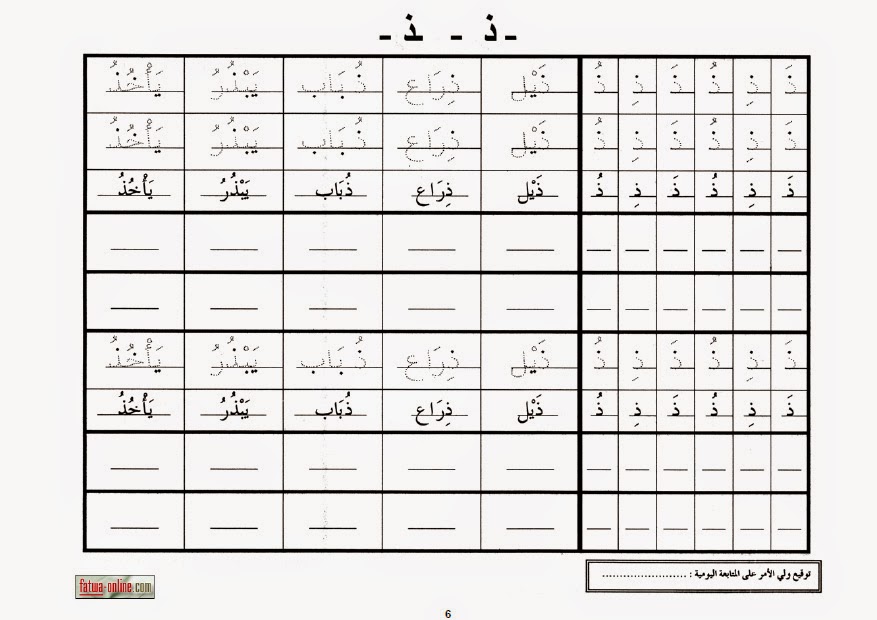 - ذ - ـذ -
ذَ ذِ ذُ ذَ ذِ ذُ ذَيْل ذِرَاع ذُبَاب يَبْذُرُ يَأْخُذُ
ذَ ذِ ذُ ذَ ذِ ذُ ذَيْل ذِرَاع ذُبَاب يَبْذُرُ يَأْخُذُ
ذَ ذِ ذُ ذَ ذِ ذُ ذَيْل ذِرَاع ذُبَاب يَبْذُرُ يَأْخُذُ
ذَ ذِ ذُ ذَ ذِ ذُ ذَيْل ذِرَاع ذُبَاب يَبْذُرُ يَأْخُذُ
ذَ ذِ ذُ ذَ ذِ ذُ ذَيْل ذِرَاع ذُبَاب يَبْذُرُ يَأْخُذُ
توقيع ولي الأمر على المتابعة اليومية : ........................
fatwa-online.com
6